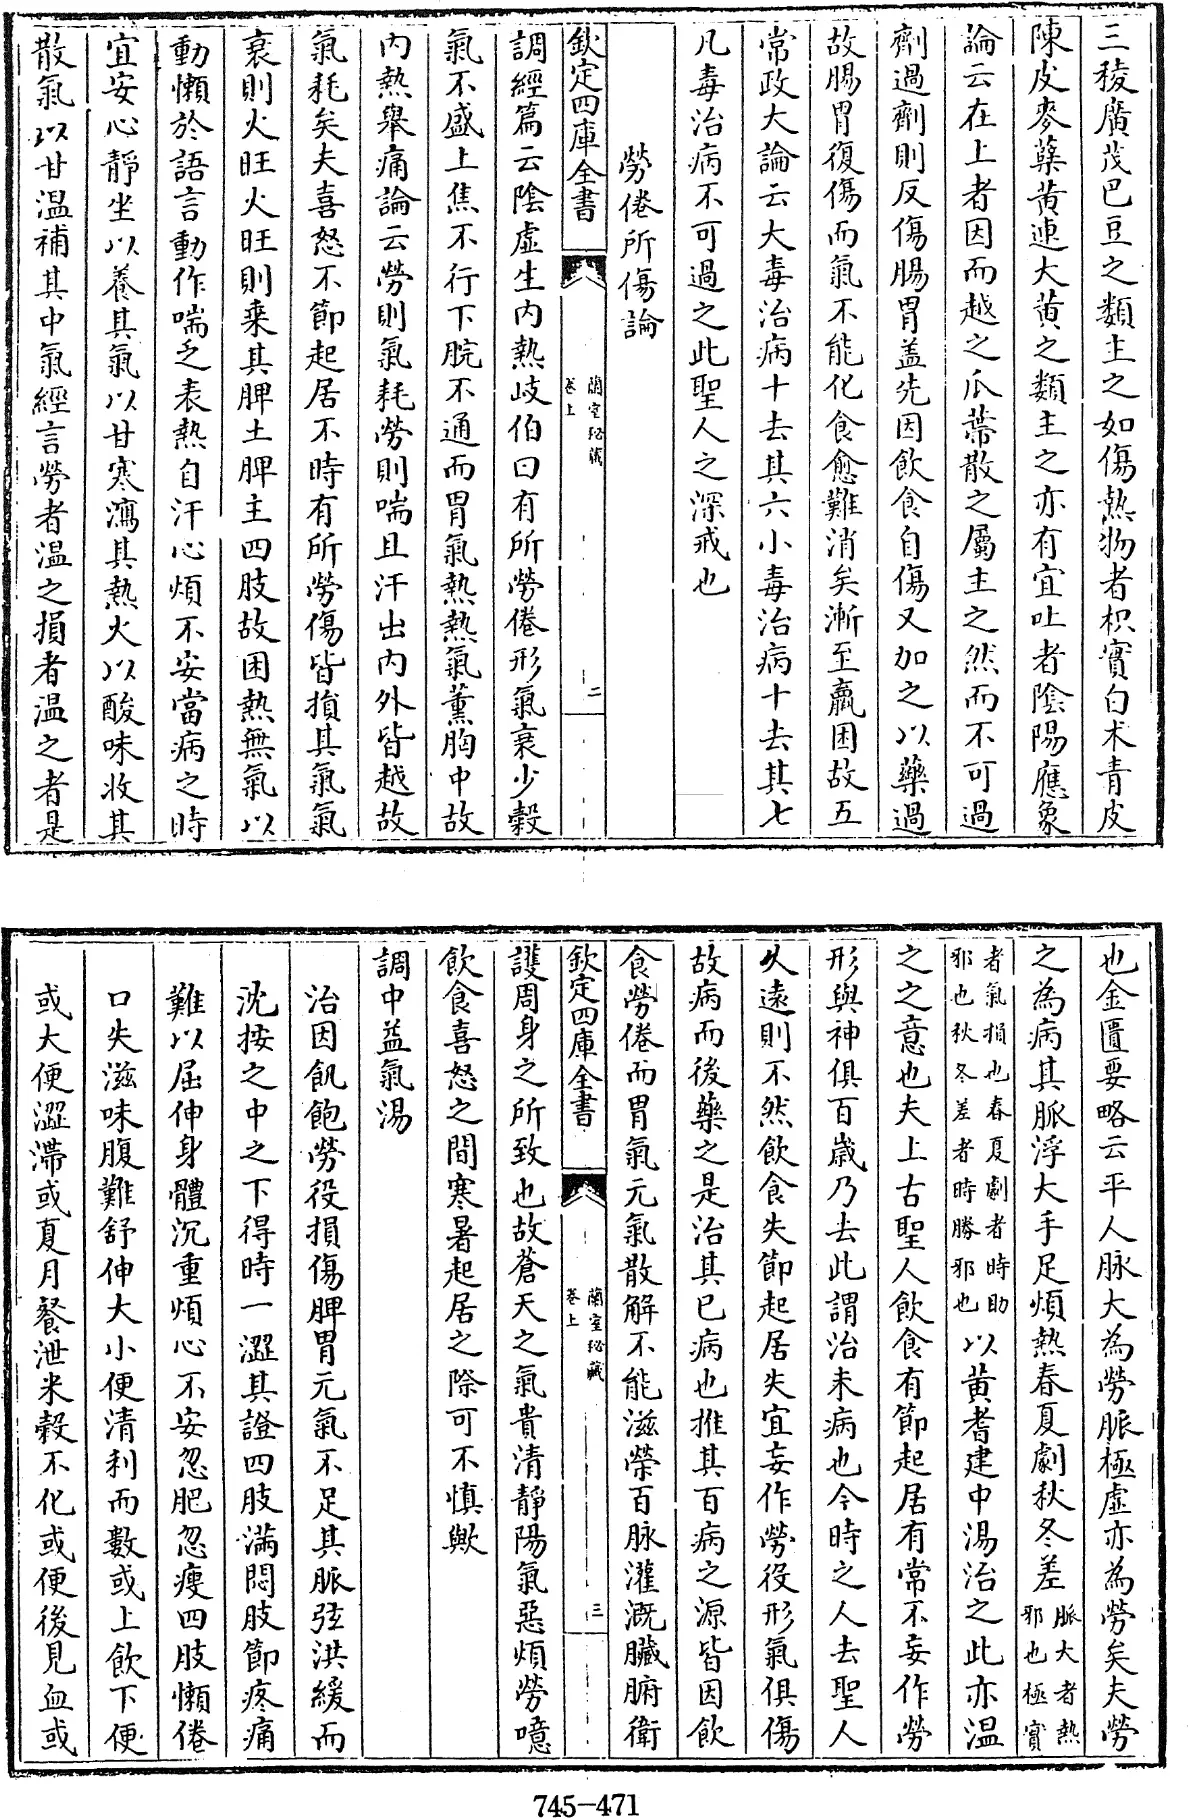 三稜廣茂巴豆之類主之如傷熱物者枳實白术青皮
陳皮麥蘖黃連大黃之類主之亦有宜吐者陰陽應象
論云在上者因而越之瓜蒂散之屬主之然而不可過
劑過劑則反傷腸胃盖先因飲食自傷又加之以藥過
故腸胃復傷而氣不能化食愈難消矣漸至羸困故五
常政大論云大毒治病十去其六小毒治病十去其七
凡毒治病不可過之此聖人之深戒也
勞倦所傷論
欽定四庫全書 蘭室秘藏 卷上 二
調經篇云陰虛生内熱岐伯曰有所勞倦形氣衰少穀
氣不盛上焦不行下脘不通而胃氣熱熱氣薰胸中故
内熱舉痛論云勞則氣耗勞則喘且汗出内外皆越故
氣耗矣夫喜怒不節起居不時有所勞傷皆損其氣氣
衰則火旺火旺則乘其脾土脾主四肢故困熱無氣以
動懶於語言動作喘乏表熱自汗心煩不安當病之時
宜安心靜坐以養其氣以甘寒瀉其熱火以酸味收其
散氣以甘温補其中氣經言勞者温之損者温之者是
也金匱要略云平人脉大為勞脈極虛亦為勞矣夫勞
之為病其脈浮大手足煩熱春夏劇秋冬差脈大者熱邪也極實
者氣損也春夏劇者時助邪也秋冬差者時勝邪也以黃耆建中湯治之此亦温
之之意也夫上古聖人飲食有節起居有常不妄作勞
形與神俱百歲乃去此謂治未病也今時之人去聖人
乆遠則不然飲食失節起居失宜妄作勞役形氣俱傷
故病而後藥之是治其已病也推其百病之源皆因飲
食勞倦而胃氣元氣散解不能滋榮百脉灌溉臟腑衛
欽定四庫全書 蘭室秘藏 卷上 三
護周身之所致也故蒼天之氣貴清靜陽氣惡煩勞噫
飲食喜怒之間寒暑起居之際可不慎歟
調中益氣湯
治因飢飽勞役損傷脾胃元氣不足其脈弦洪緩而
沈按之中之下得時一澀其證四肢滿悶肢節疼痛
難以屈伸身體沉重煩心不安忽肥忽瘦四肢懶倦
口失滋味腹難舒伸大小便清利而數或上飲下便
或大便澀滯或夏月飧泄米穀不化或便後見血或
745-471